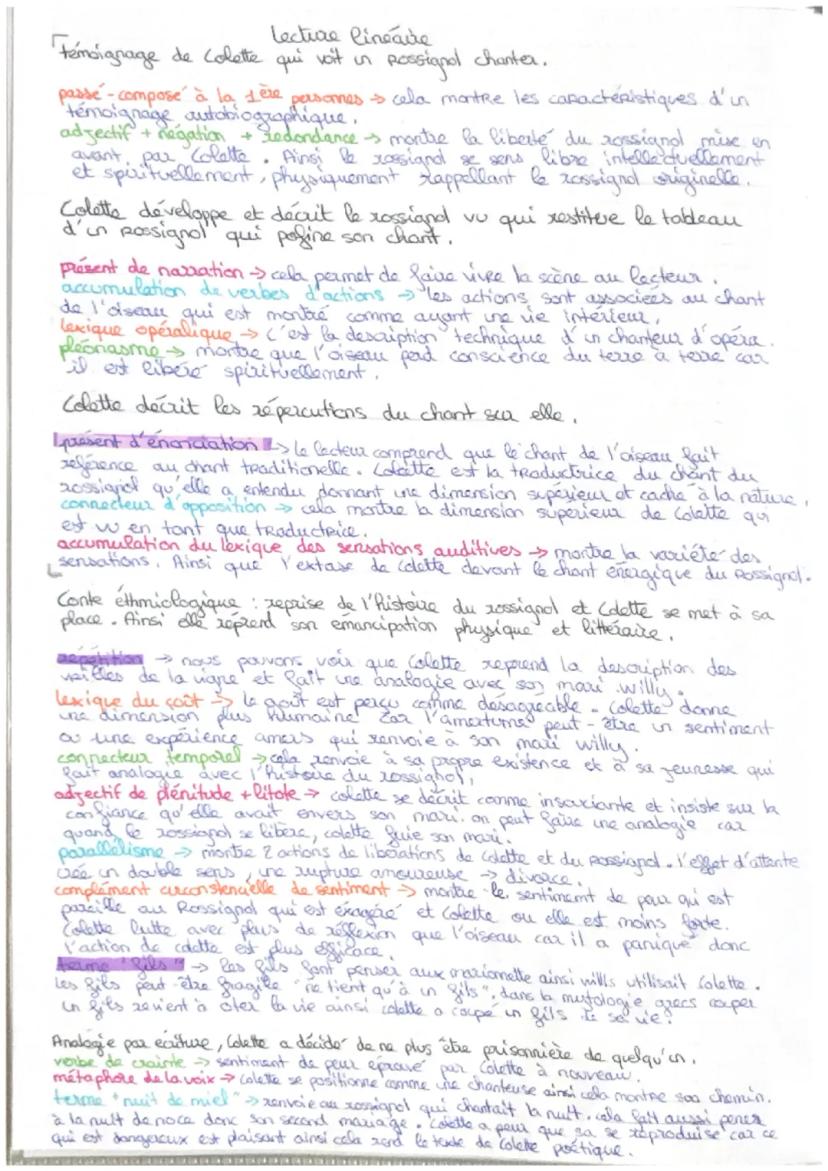 Lecture linéaire
témoignage de Colette qui voit un Rossignol chanter.
passé-composé à la 1ère personnes → cela montre les caractéristiques d'un
témoignage autobiographique.
adjectif + négation + redondance → montre la liberté du rossignol mise en
avant par Colette. Ainsi le rossignol se sens libre intellectuellement
et spirituellement, physiquement rappellant le rossignol originelle.
Colette développe et décrit le rossignol vu qui restitue le tableau
d'un Rossignol qui pofine son chant.
présent de narration → cela permet de faire vivre la scène au lecteur.
accumulation de verbes d'actions → les actions sont associées au chant
de l'oiseau qui est montré comme ayant une vie intérieur.
lexique opéralique → c'est la description technique d'un chanteur d'opéra.
pléonasme → montre que l'oiseau perd conscience du terre à terre car
il est libéré spirituellement.
Colette décrit les répercutions du chant sur elle.
présent d'énonciation → Le lecteur comprend que le chant de l'oiseau fait
référence au chant traditionelle. Colette est la traductrice du chant du
rossignol qu'elle a entendu donnant une dimension supérieur et caché à la nature.
connecteur d'opposition → cela montre la dimension supérieur de Colette qui
est vu en tant que traductrice.
accumulation du lexique des sensations auditives → montre la variété des
sensations. Ainsi que l'extase de Colette devant le chant énergique du Rossignol.
Conte éthmiologique : reprise de l'histoire du rossignol et Colette se met à sa
place. Ainsi elle reprend son émancipation physique et littéraire.
répétition → nous pouvons voir que Colette reprend la description des
vrilles de la vigne et fait une analogie avec son mari Willy.
lexique du goût → le goût est perçu comme désagréable. Colette donne
une dimension plus humaine car l'amertume peut-être un sentiment
ou une expérience amers qui renvoie à son mari willy.
connecteur temporel → cela renvoie à sa propre existence et à sa jeunesse qui
fait analogie avec l'histoire du rossignol.
adjectif de plénitude + litote → colette se décrit comme insouciante et insiste sur la
confiance qu'elle avait envers son mari. on peut faire une analogie car
quand le rossignol se libère, colette fuie son mari.
parallélisme → montre 2 actions de libérations de Colette et du Rossignol. l'effet d'attente
crée un double sens, une rupture amoureuse → divorce.
complément circonstencielle de sentiment → montre le sentiment de peur qui est
pareille au Rossignol qui est éxagéré et Colette ou elle est moins forte.
Colette lutte avec plus de réflexion que l'oiseau car il a paniqué donc
l'action de colette est plus efficace.
terme "fils" → les fils font penser aux marionette ainsi willy utilisait Colette.
les fils peut-être fragile "ne tient qu'à un fils", dans la mytologie grecs couper
un fils revient à ôter la vie ainsi colette a coupé un fils de sa vie.
Analogie par écriture, Colette a décidé de ne plus être prisonnière de quelqu'un.
verbe de crainte → sentiment de peur éprouvé par Colette à nouveau.
métaphore de la voix → colette se positionne comme une chanteuse ainsi cela montre son chemin.
terme "nuit de miel" → renvoie au rossignol qui chantait la nuit. cela fait aussi penser
à la nuit de noce donc son second mariage. Colette a peur que sa se reproduise car ce
qui est dangereux est plaisant ainsi cela rend le texte de Colette poétique.